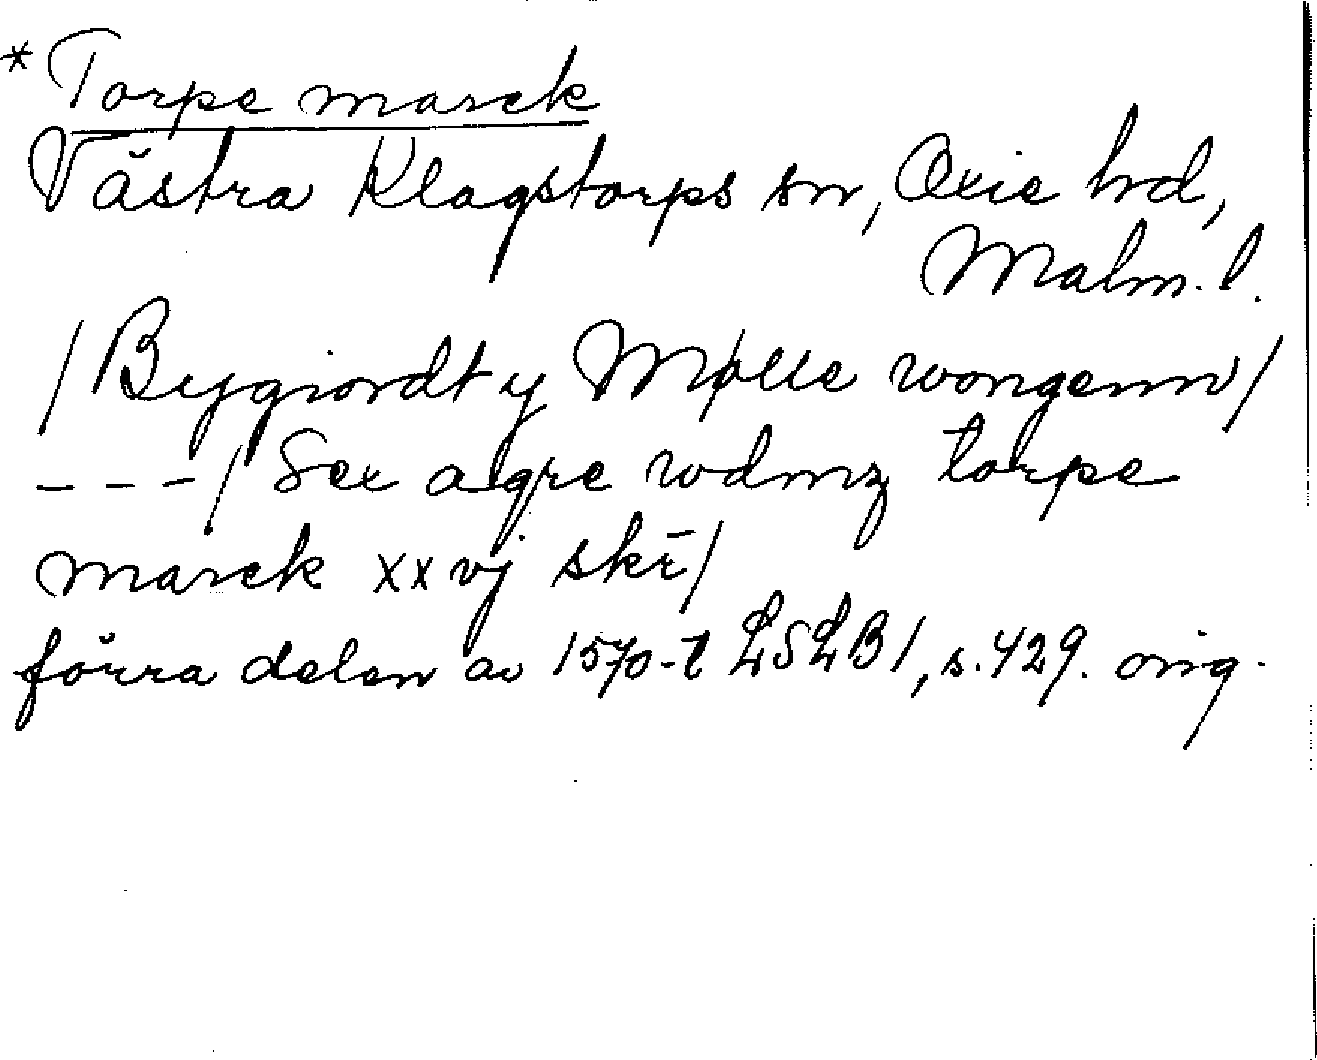 * Torpe marck
Västra Klagstorps sn, Oxie hd,
Malm. l.
/Bygiordt y Mølle wongenn/
---/ Sex agre wdmz torpe
marck xxvj skr̄/
förra delen av 1570-t LSLB1, s. 429. orig.